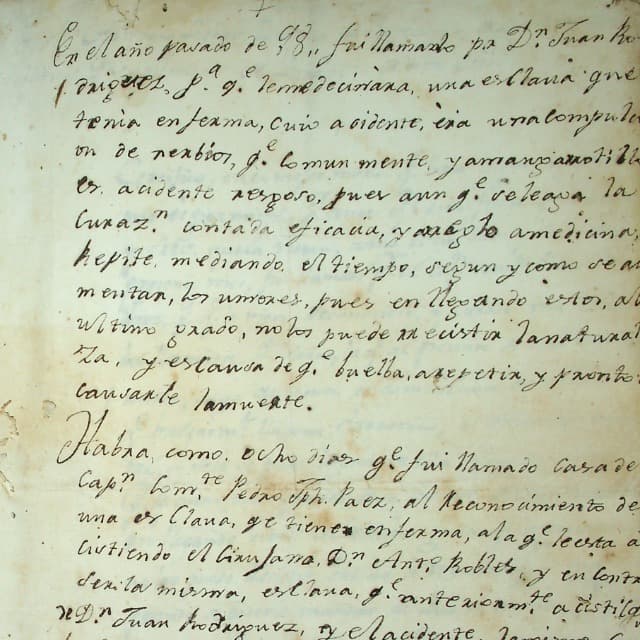 En el año pasado de 98,, fui llamado pr Dn Juan Ro
driguez, pa qe le medecinara, una esclava que
tenia enferma, cuio acidente, era una compulci
on de nerbios, qe comunmente, y aman garrotillo
es. acidente resgoso, pues aun qe se le aga la
Curazn con toda eficacia, y areglo a medicina,
Repite, mediando, el tiempo, segun y como se au
mentan, los umores, pues en llegando estos, al
ultimo grado, no los puede rrecistir la natura
za, y es causa de qe buelba, a repetir, y pronto
causarle la muerte.
Habra, como, ocho dias qe fui llamado casa de
Capn Comte Pedro Jph. Paez, al Reconocimiento de
una esClava, qe tiene enferma, a la qe le esta a
cistiendo el Cirujano, Dn Anto Robles, y en contr
ser la misma, esclava, qe anteriormte a cisti
Dn Juan Rodriguez, y el acidente,